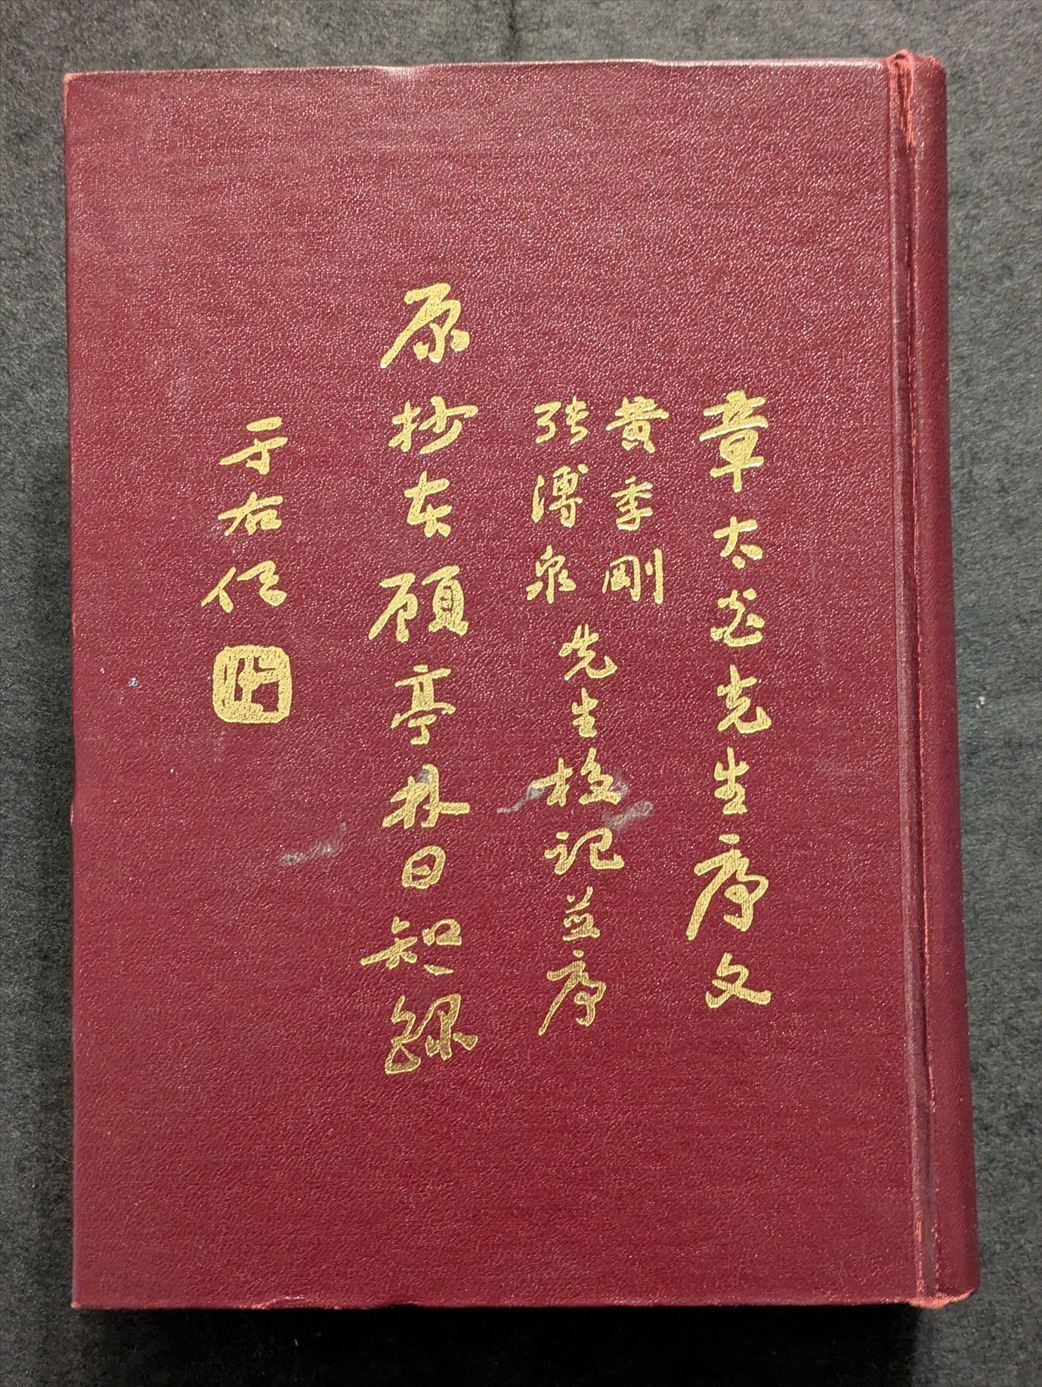 章太炎先生序文
黄季剛
張溥泉
先生校記並序
原抄本顧亭林日知錄
于右任